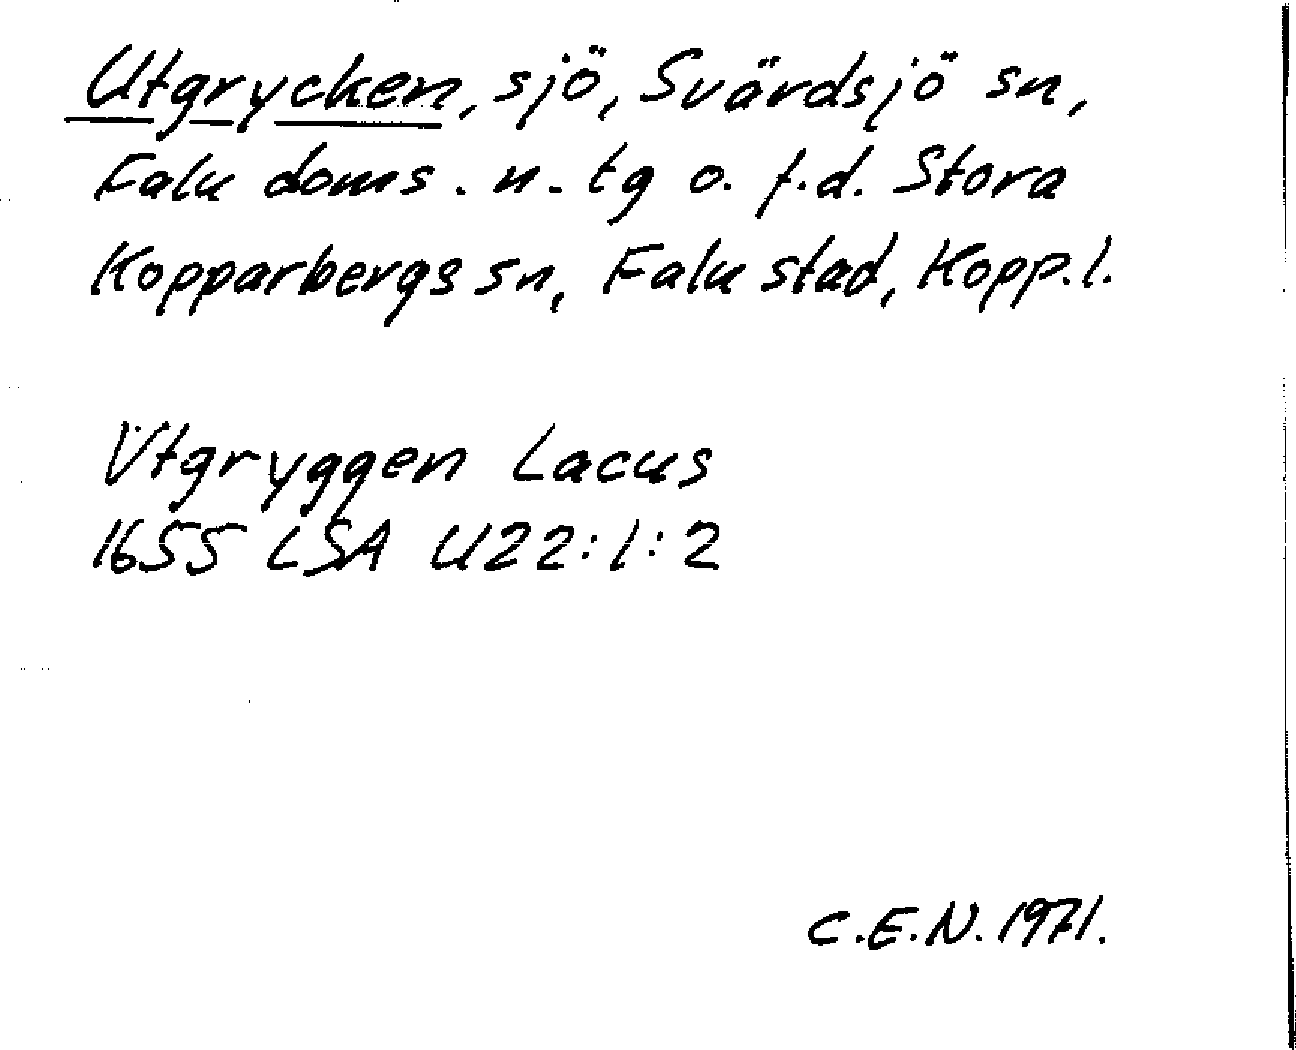 Utgrycken, sjö, Svärdsjö sn,
Falu doms. n. tg o. f.d. Stora
Kopparbergs sn, Falu stad, Kopp.l.
Vtgryggen Lacus
1655 LSA U22:1:2
C.E.N. 1971.